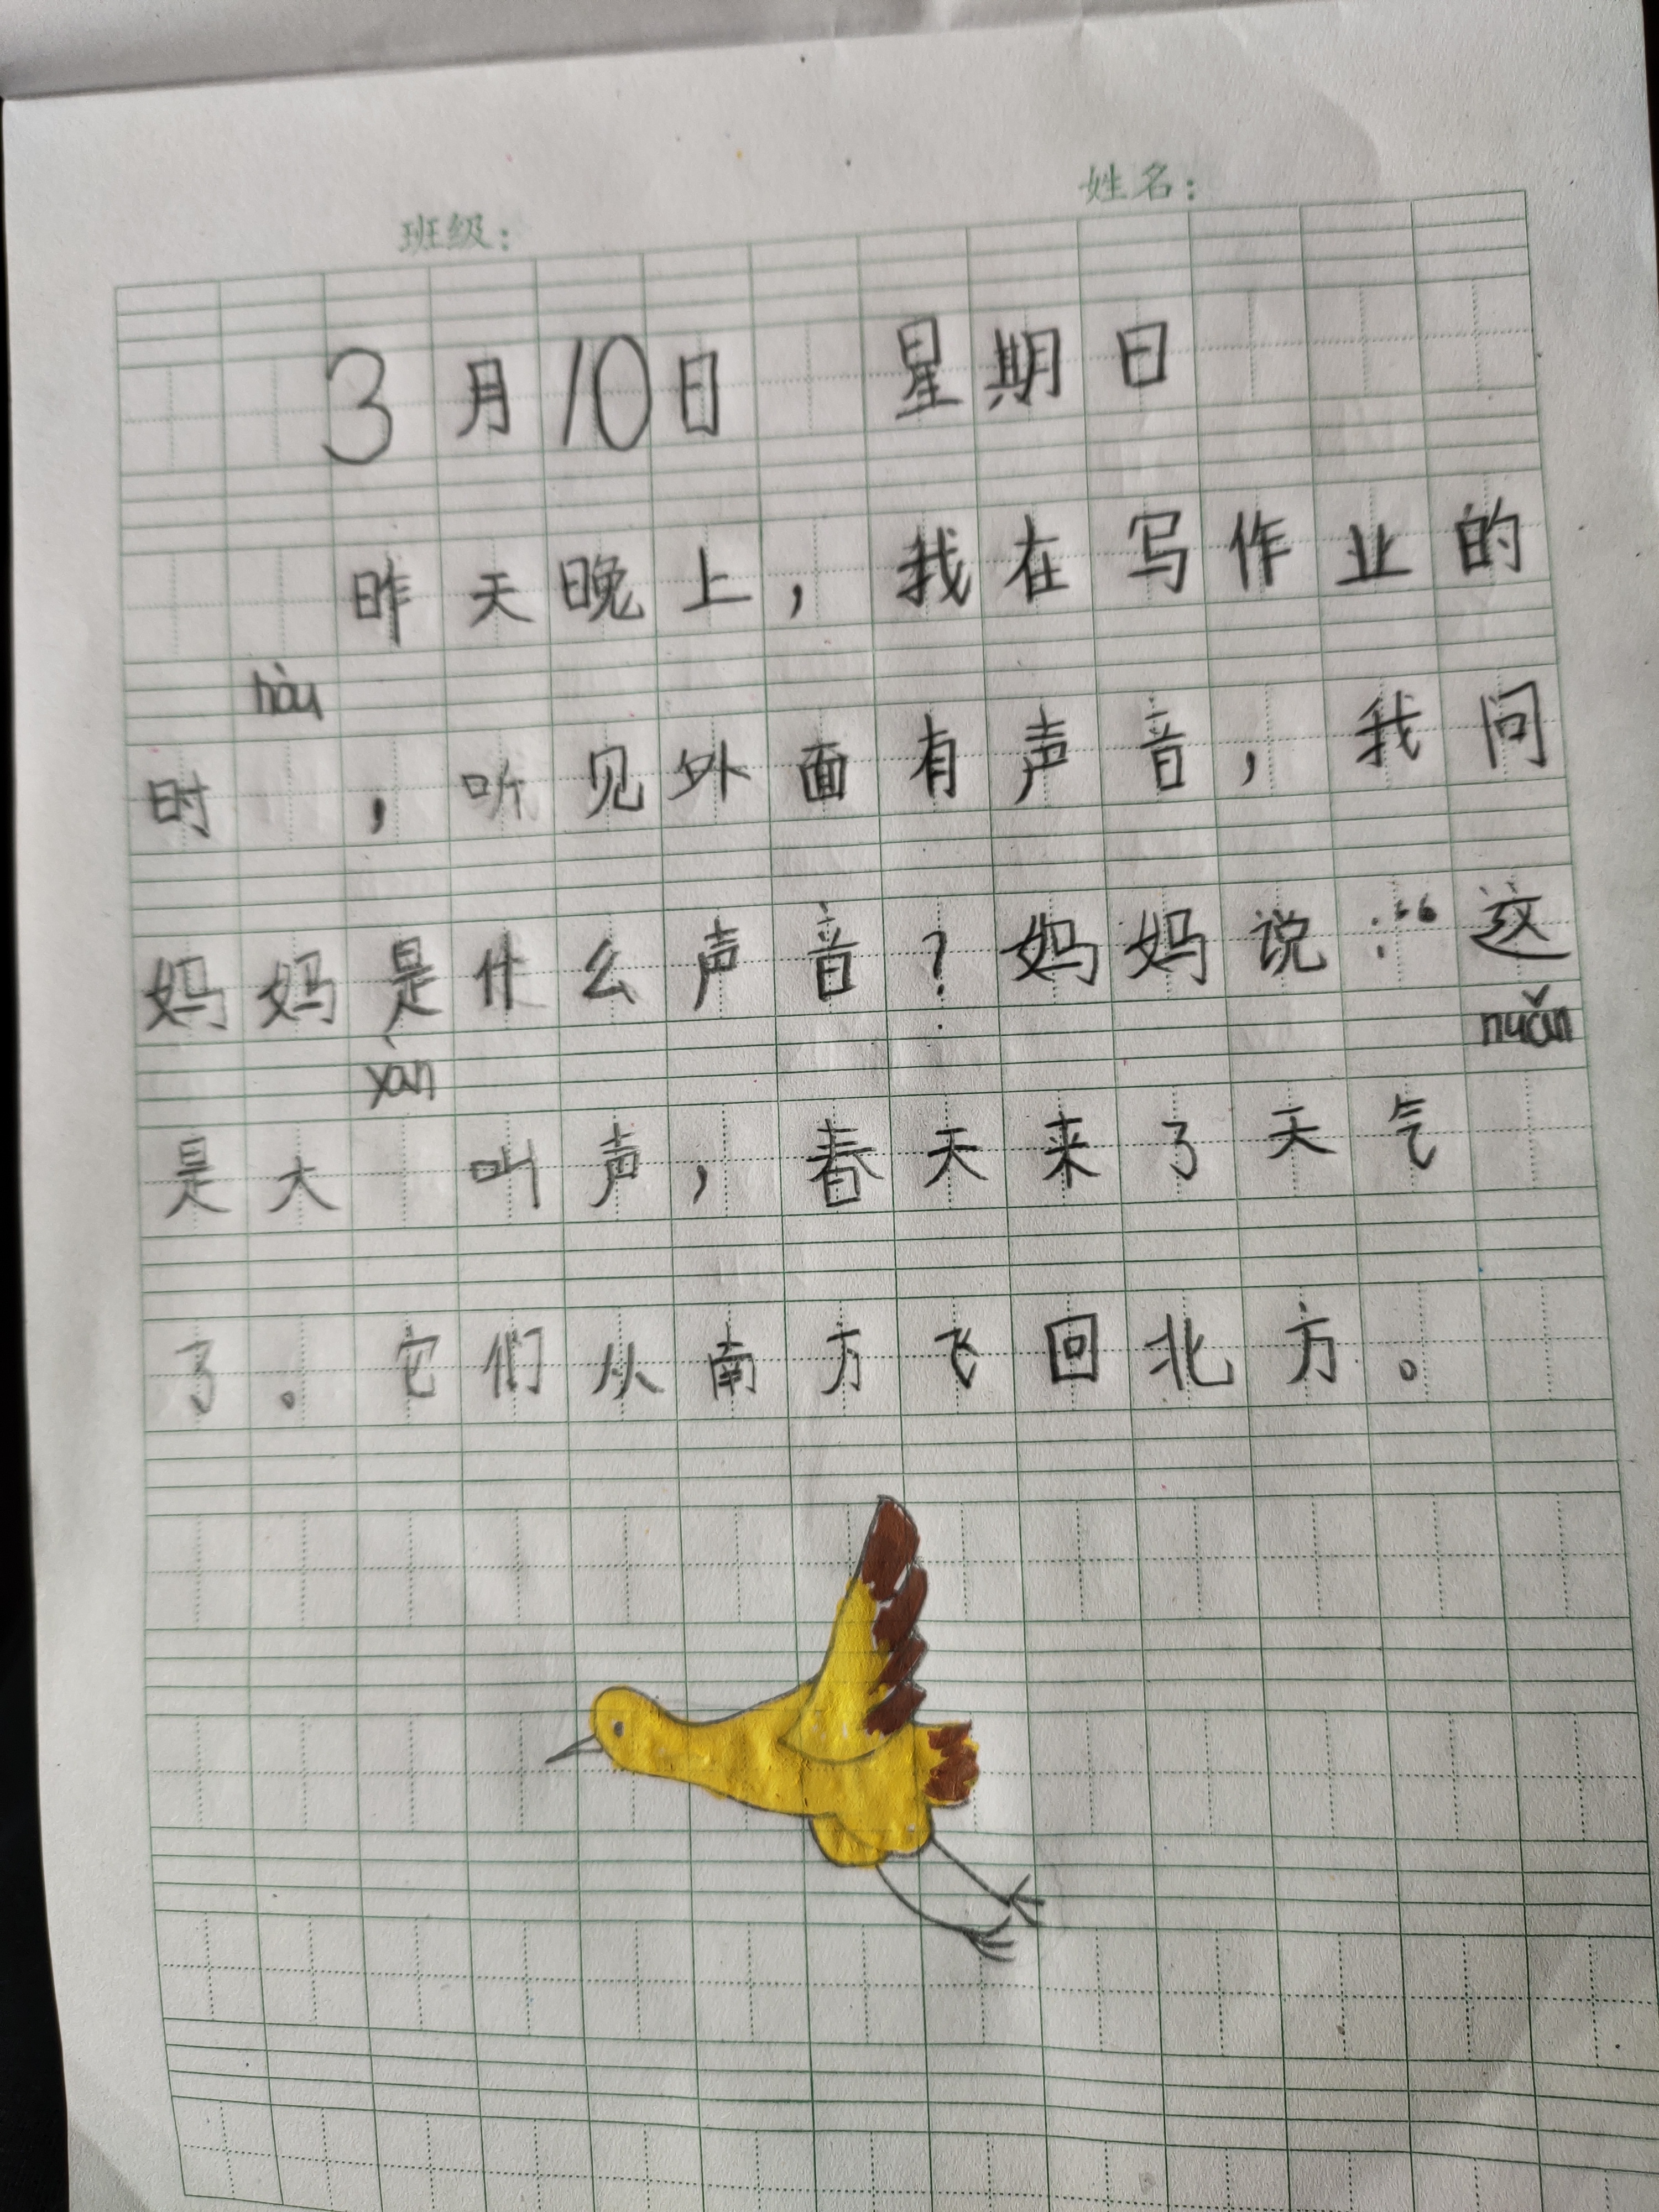 班级： 姓名：
3月10日 星期日
昨天晚上，我在写作业的
hòu
时 ，听见外面有声音，我问
妈妈是什么声音？妈妈说：“这
yàn nuǎn
是大 叫声，春天来了天气
了。它们从南方飞回北方。